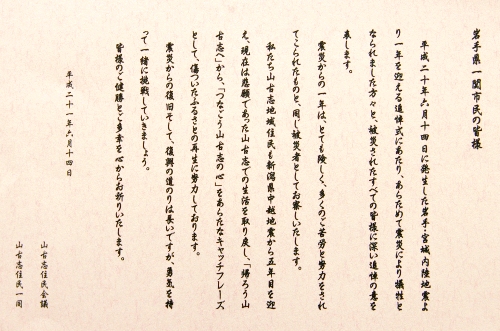 岩手県一関市民の皆様
平成二十年六月十四日に発生した岩手・宮城内陸地震よ
り一年を迎える追悼式にあたり、あらためて震災により犠牲と
なられました方々と、被災されたすべての皆様に深い追悼の意を
表します。
震災からの一年は、とても険しく、多くのご苦労と努力をされ
てこられたものと、同じ被災者としてお察しいたします。
私たち山古志地域住民も新潟県中越地震から五年目を迎
え、現在は悲願であった山古志での生活を取り戻し、「帰ろう山
古志へ」から、「つなごう山古志の心」をあらたなキャッチフレーズ
として、傷ついたふるさとの再生に努力しております。
震災からの復旧そして、復興の道のりは長いですが、勇気を持
って一緒に挑戦していきましょう。
皆様のご健勝とご多幸を心からお祈りいたします。
平成二十一年六月十四日
山古志住民会議
山古志住民一同